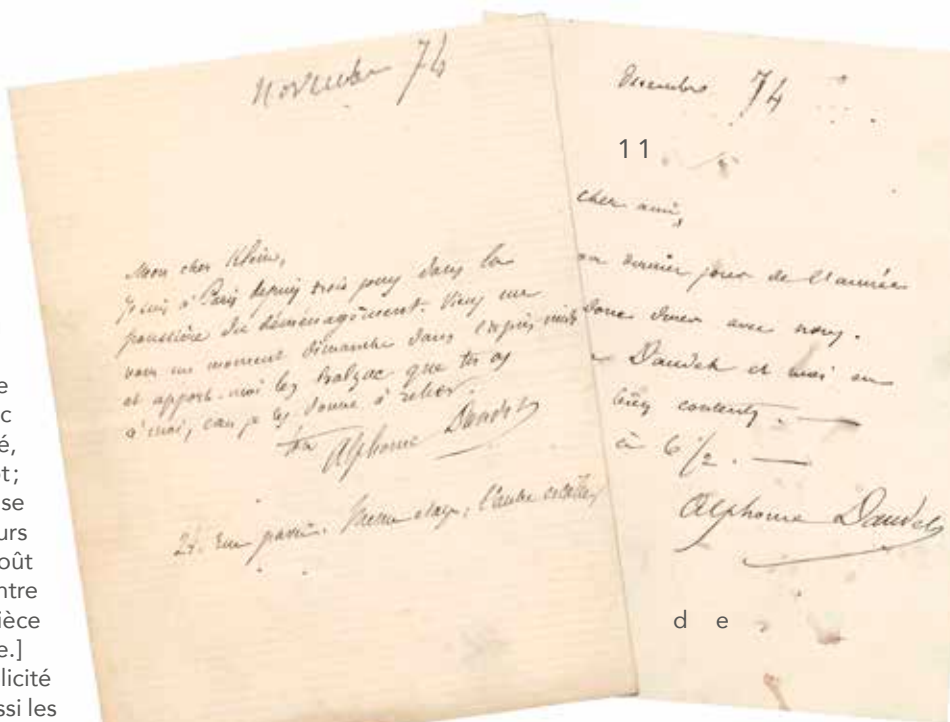 e
c
é,
ot;
se
urs
oût
ntre
ièce
e.]
licité
ssi les
novembre 74
Mon cher Klein,
Je suis à Paris depuis trois jours dans la
poussière du déménagement. Viens me
voir un moment dimanche dans l'après-midi
et apporte-moi les Balzac que tu as
à moi, car je les donne à relier.
ton Alphonse Daudet
24. rue pavée. même étage, l'autre escalier
Decembre 74
11
cher ami,
dernier jour de l'année
donc diner avec nous.
Daudet et moi en
bien contents.
à 6 1/2.
Alphonse Daudet
d e